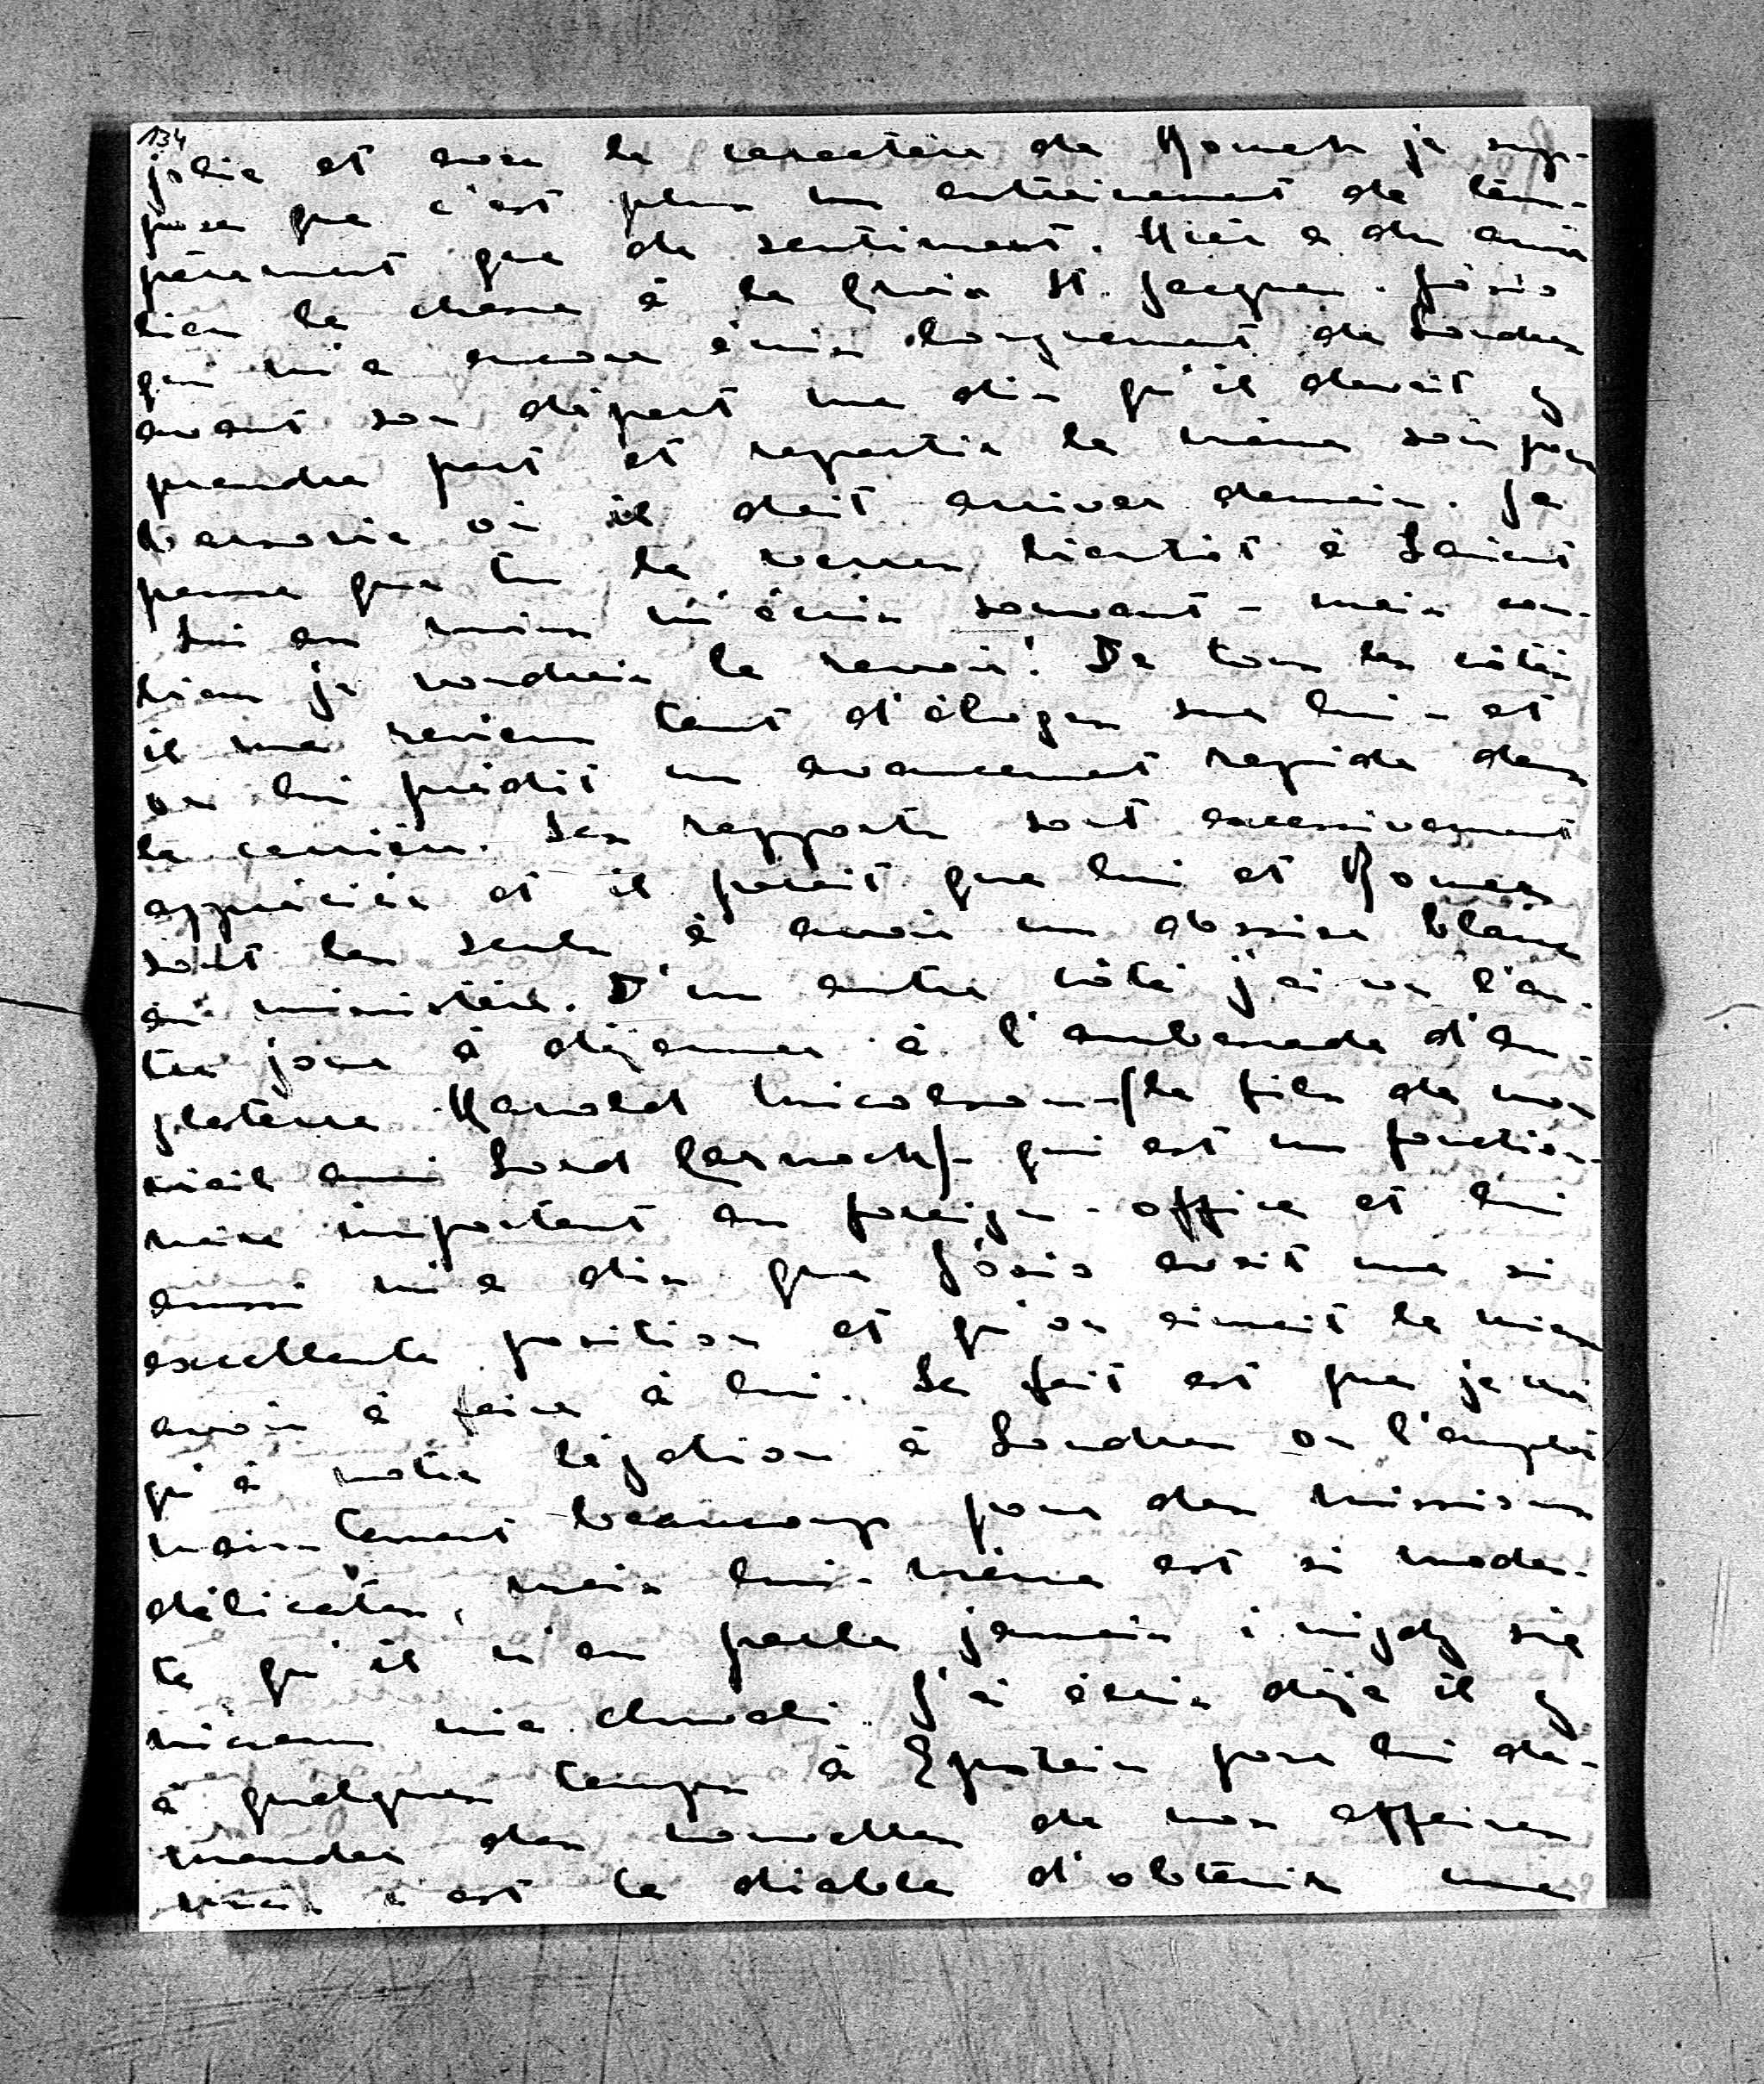 134
jolie et avec le caractère de Romek je sup-
pose que c'est plus un entrainement de tem-
pérament que de sentiment. Hier a du avoir
lieu la chasse à la Croix St. Jacques. Józio
qui m'a encore écris longuement de Londres
avant son départ me dis qu'il devait y
prendre part et repartir le même soir pour
Varsovie où il doit arriver demain. Je
pense que tu le verras bientôt à Łańcut
Lui au moins m'écris souvent - mais com-
bien je voudrais le revoir! De tous les côtés
il me reviens tant d'éloges sur lui - et
on lui prédit un avancement rapide dans
la carrière. Ses rapports sont excessivement
appréciés et il parait que lui et Romer
sont les seuls à avoir un dossier blanc
au ministère. D'un autre côté j'ai vu l'au-
tre jour à déjeuner à l'ambassade d'An-
gleterre Harold Nicolson - (le fils de mon
vieil ami Lord Carnock) - qui est un fonction-
naire important au foreign-office et lui
aussi m'a dis que Józio avait une si
excellente position et qu'on aimait le mieux
avoir à faire à lui. Le fait est que je sais
qu'à notre légation à Londres on l'emploi
maintenant beaucoup pour des missions
délicates, mais lui-même est si modes-
te qu'il n'en parle jamais i nigdy się
niczem nie chwali. J'ai écris déjà il y
a quelques temps à Epstein pour lui de-
mander des nouvelles de nos affaires
mais c'est le diable d'obtenir une